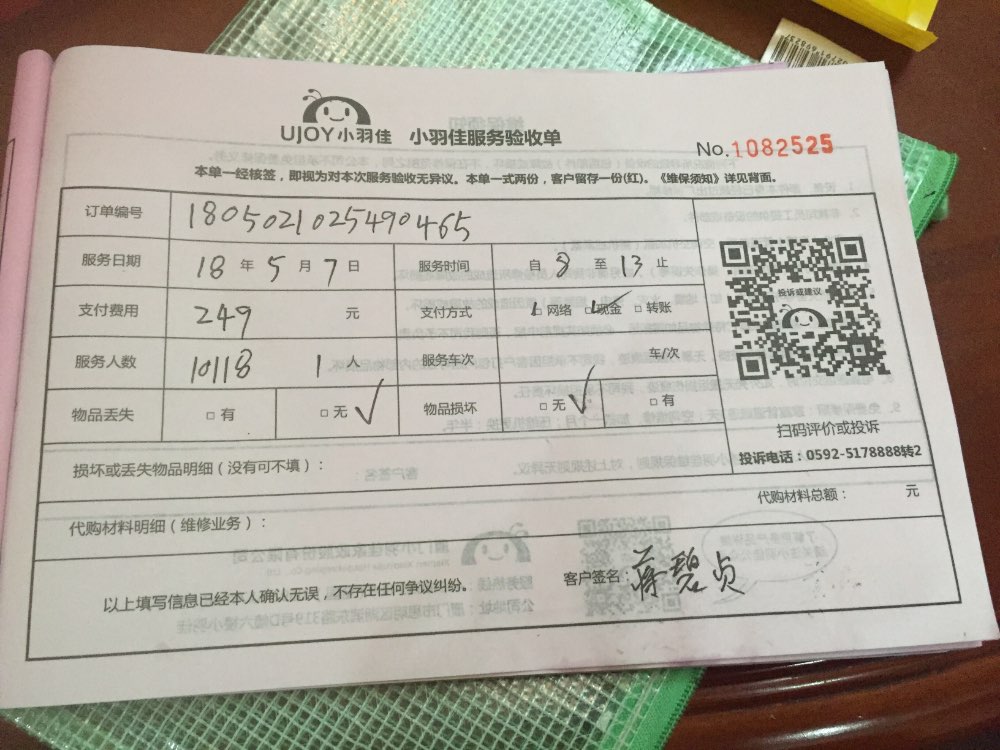 UJOY小羽佳 小羽佳服务验收单
No.1082525
本单一经核签，即视为对本次服务验收无异议。本单一式两份，客户留存一份(红)。《维保须知》详见背面。
订单编号 1805021025490465
服务日期 18 年 5 月 7 日 服务时间 自 8 至 13 止
支付费用 249 元 支付方式 □网络 □现金 □转账
服务人数 10118 1人 服务车次 车/次
物品丢失 □有 □无 ✓ 物品损坏 □无 ✓ □有
投诉或建议
扫码评价或投诉
投诉电话：0592-5178888转2
损坏或丢失物品明细（没有可不填）：
代购材料总额： 元
代购材料明细（维修业务）：
客户签名：蒋碧贞
以上填写信息已经本人确认无误，不存在任何争议纠纷。